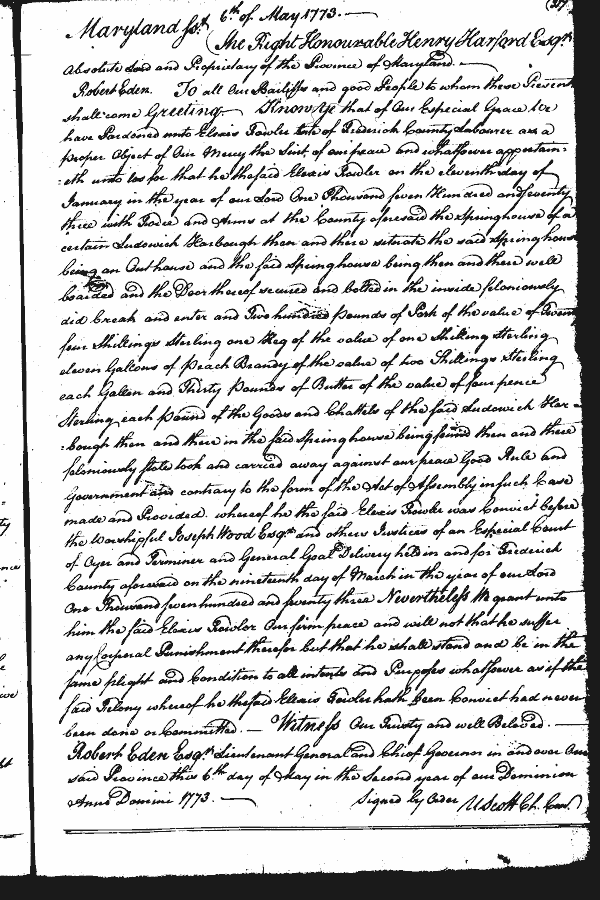 (27
Maryland ss.t 6th of May 1773.
The Right Honourable Henry Harford Esqr.
Absolute Lord and Proprietary of the Province of Maryland.
Robert Eden. To all Our Bailiffs and good People to whom these Presents
shall come Greeting Know ye that of Our Especial Grace We
have Pardoned unto Elexis Fowler late of Frederick County Labourer as a
proper Object of Our Mercy the Suit of our peace and whatsoever appertain-
:eth unto us for that he the said Elexis Fowler on the eleventh day of
January in the year of our Lord One Thousand seven Hundred and seventy
three with Force and Arms at the County aforesaid the Springhouse of a
certain Ludowick Harbough then and there situate the said Springhouse
being an Outhouse and the said Springhouse being then and there well
boarded and the Door thereof secured and bolted in the inside feloniously
did break and enter and Two hundred pounds of Pork of the value of
four Shillings Sterling one Keg of the value of one Shilling Sterling
eleven Gallons of Peach Brandy of the value of two Shillings Sterling
each Gallon and Thirty Pounds of Butter of the value of four pence
Sterling each pound of the Goods and Chattels of the said Ludowick Har-
:bough then and there in the said Springhouse being found then and there
feloniously stole took and carried away against our peace Good Rule and
Government and contrary to the form of the Act of Assembly in such Case
made and Provided. whereof he the said Elexis Fowler was Convict before
the Worshipful Joseph Wood Esqr. and others Justices of an Especial Court
of Oyer and Terminer and General Goal Delivery held in and for Frederick
County aforesaid on the nineteenth day of March in the year of our Lord
One Thousand seven hundred and seventy three Nevertheless We grant unto
him the said Elexis Fowler Our firm peace and will not that he suffer
any Corporal Punishment therefor but that he shall stand and be in the
same plight and Condition to all intents and Purposes whatsoever as if the
said Felony whereof he the said Elexis Fowler hath been Convict had never
been done or Committed. — Witness Our Trusty and well Beloved.
Robert Eden Esqr. Lieutenant General and Chief Governor in and over Our
said Province this 6th day of May in the Second year of our Dominion
Anno Domini 1773.
Signed by Order U Scott Cl. Con.